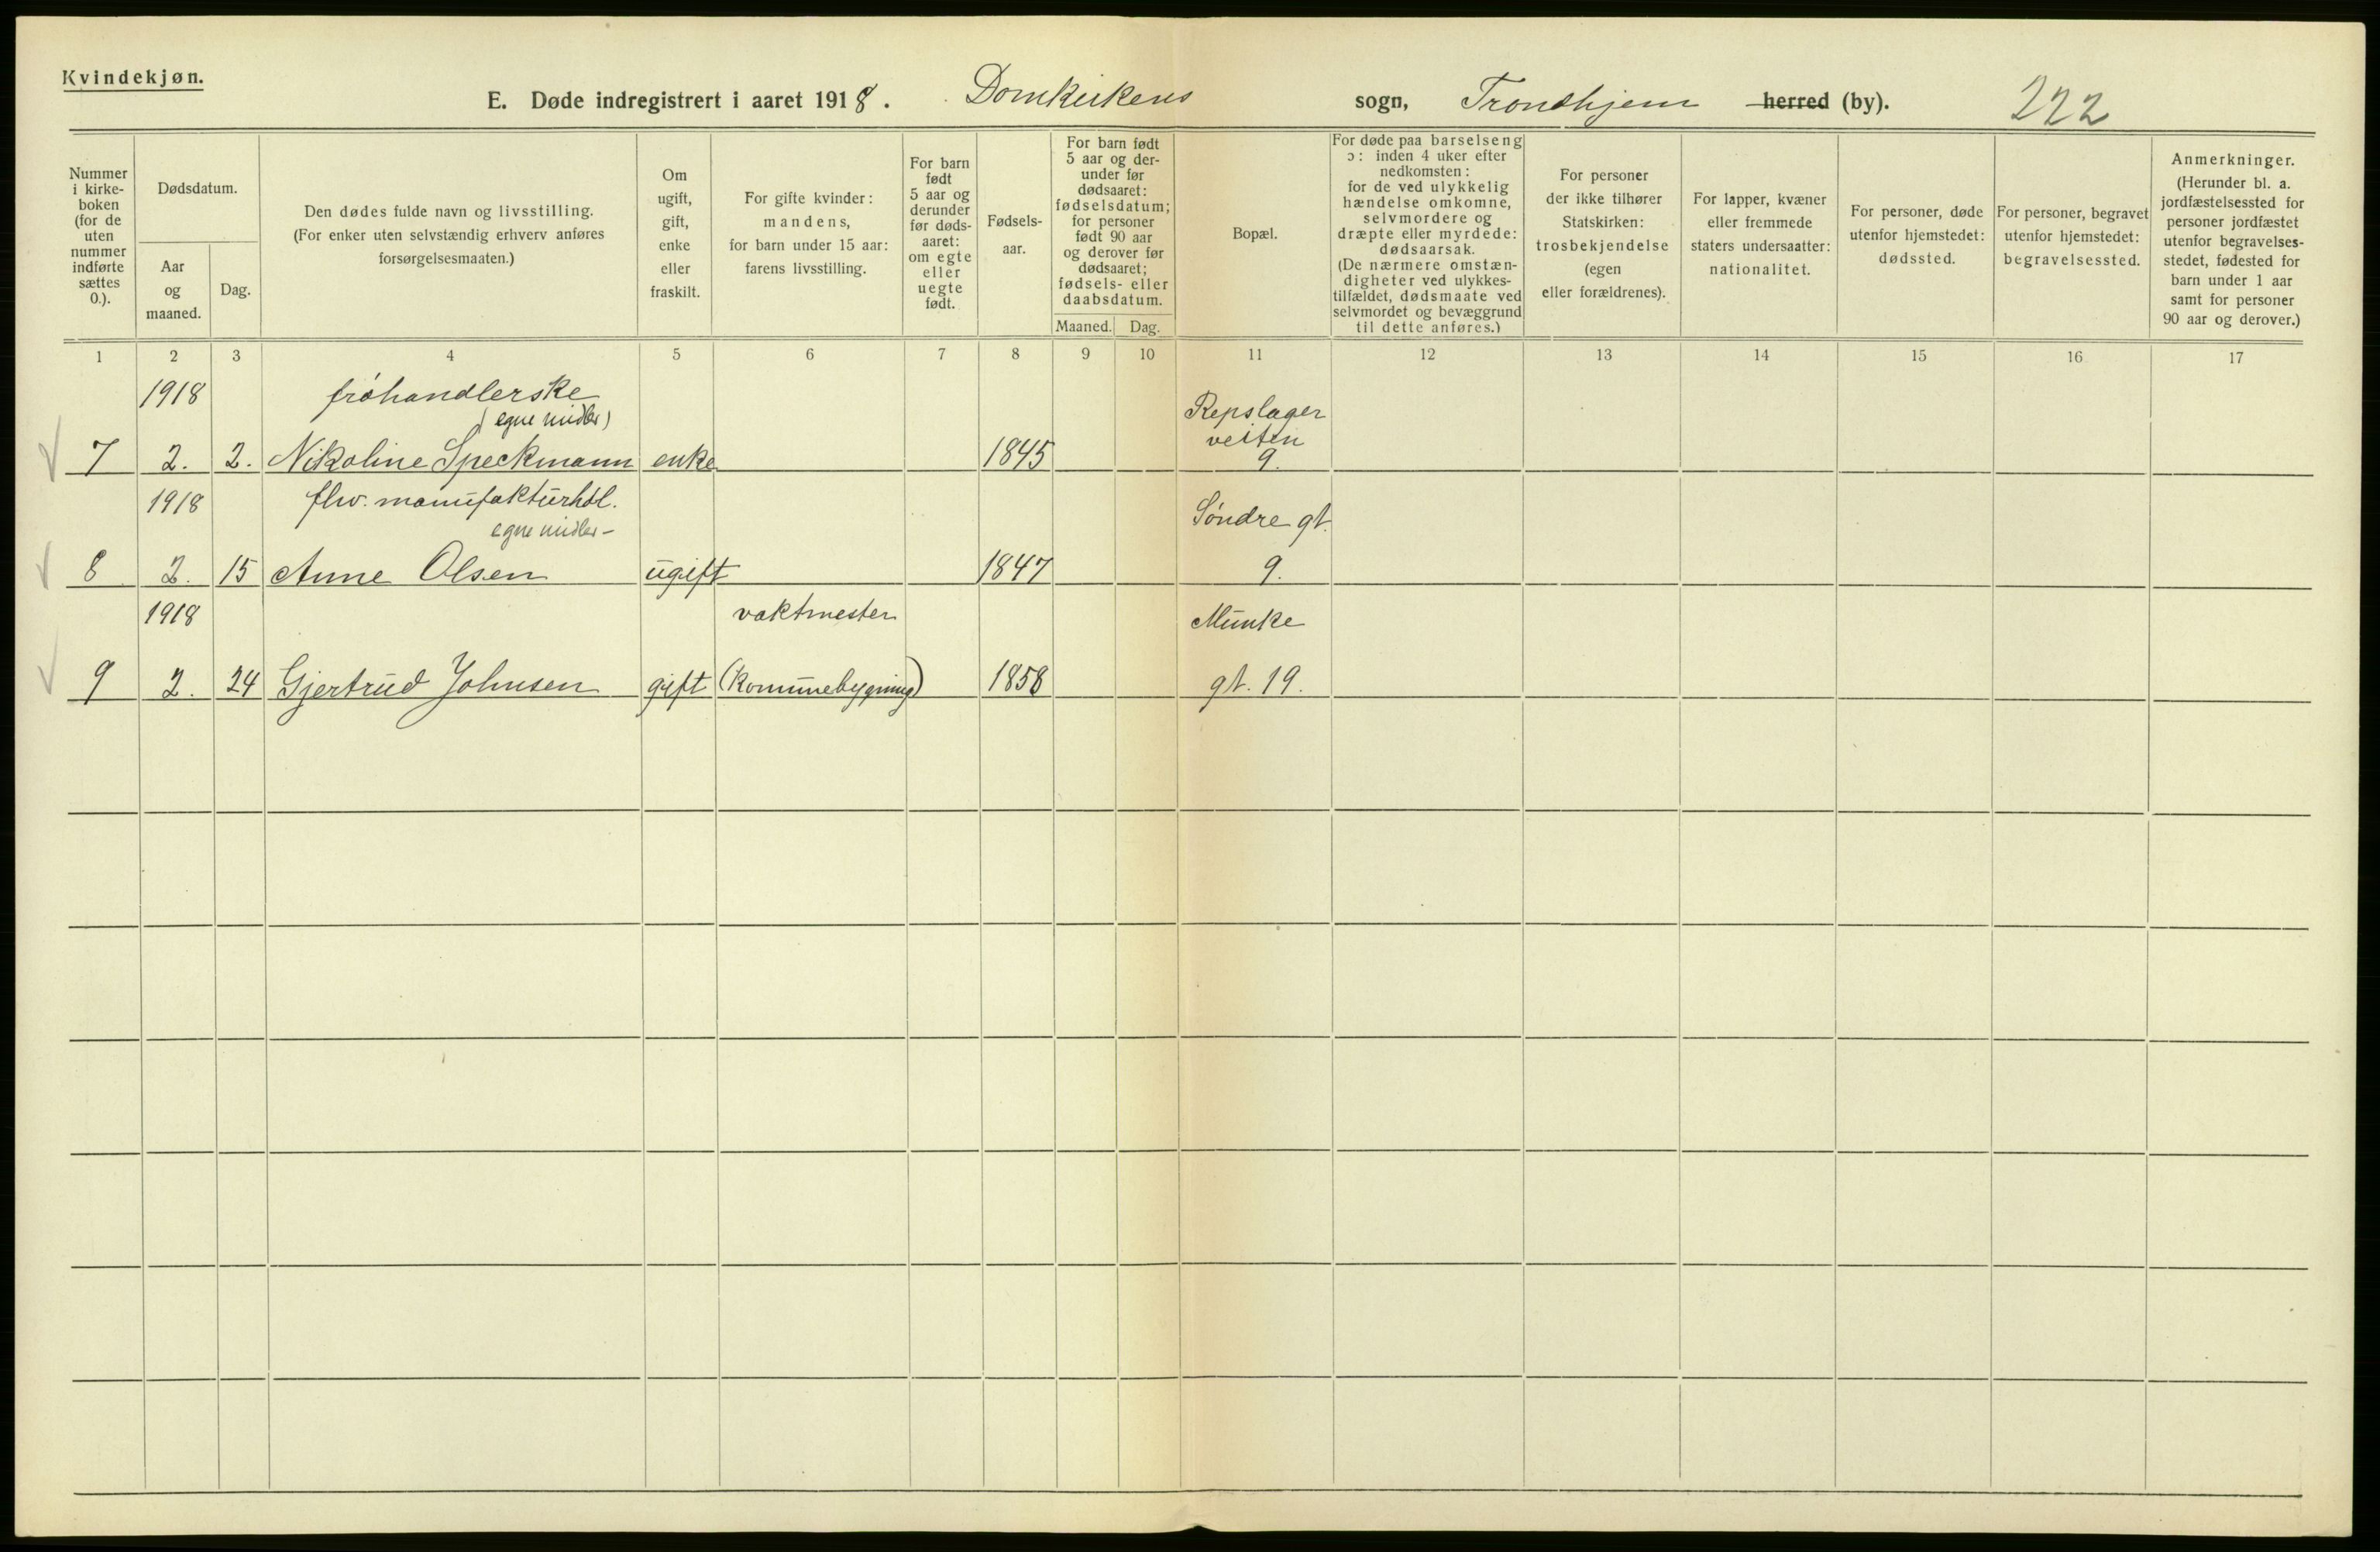 Kvindekjøn.
E. Døde indregistrert i aaret 1918. Domkirkens sogn, Trondhjem herred (by). 222
Nummer
i kirke-
boken
(for de
uten
nummer
indførte
sættes
0.).
Dødsdatum.
Aar
og
maaned.
Dag.
Den dødes fulde navn og livsstilling.
(For enker uten selvstændig erhverv anføres
forsørgelsesmaaten.)
Om
ugift,
gift,
enke
eller
fraskilt.
For gifte kvinder:
mandens,
for barn under 15 aar:
farens livsstilling.
For barn
født
5 aar og
derunder
før døds-
aaret:
om egte
eller
uegte
født.
Fødsels-
aar.
For barn født
5 aar og der-
under før
dødsaaret:
fødselsdatum;
for personer
født 90 aar
og derover før
dødsaaret;
fødsels- eller
daabsdatum.
Maaned. Dag.
Bopæl.
For døde paa barselseng
ɔ: inden 4 uker efter
nedkomsten:
for de ved ulykkelig
hændelse omkomne,
selvmordere og
dræpte eller myrdede:
dødsaarsak.
(De nærmere omstæn-
digheter ved ulykkes-
tilfældet, dødsmaate ved
selvmordet og bevæggrund
til dette anføres.)
For personer
der ikke tilhører
Statskirken:
trosbekjendelse
(egen
eller forældrenes).
For lapper, kvæner
eller fremmede
staters undersaatter:
nationalitet.
For personer, døde
utenfor hjemstedet:
dødssted.
For personer, begravet
utenfor hjemstedet:
begravelsessted.
Anmerkninger.
(Herunder bl. a.
jordfæstelsessted for
personer jordfæstet
utenfor begravelses-
stedet, fødested for
barn under 1 aar
samt for personer
90 aar og derover.)
1 2 3 4 5 6 7 8 9 10 11 12 13 14 15 16 17
1918 fróhandlerske Repslager
(egne midler) veiten
7 2. 2. Nikoline Speckmann enke 1845 9.
1918 fhv. manufakturhdl. Söndre gt.
egne midler-
8 2. 15 Anne Olsen ugift 1847 9.
1918 vaktmester Munke
9 2. 24 Gjertrud Johnsen gift (Kommunebygning) 1858 gt. 19.